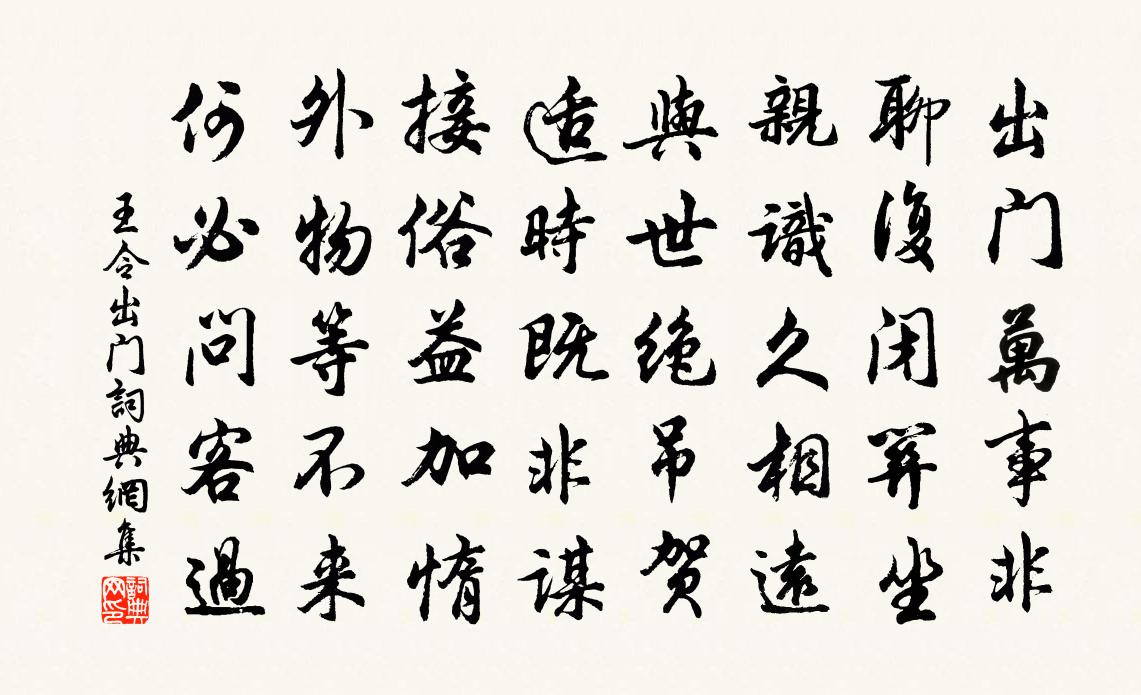 出门萬事非
聊復闭關坐
親識久相遠
與世绝吊贺
适時既非謀
接俗益加惰
外物等不来
何必问客過
王令出门詞典網集
詞典网印